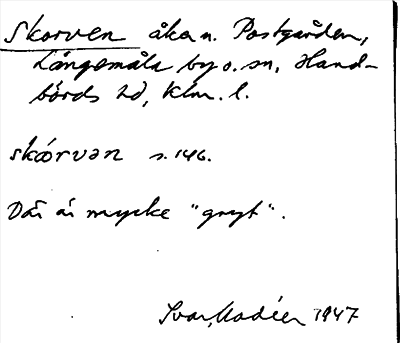 Skorven åka n. Postgården,
Långemåla by o. sn, Hand-
börds hd, Klm. l.
skórvən s. 146.
Där är mycke "gryt".
Ivar Modéer 1947